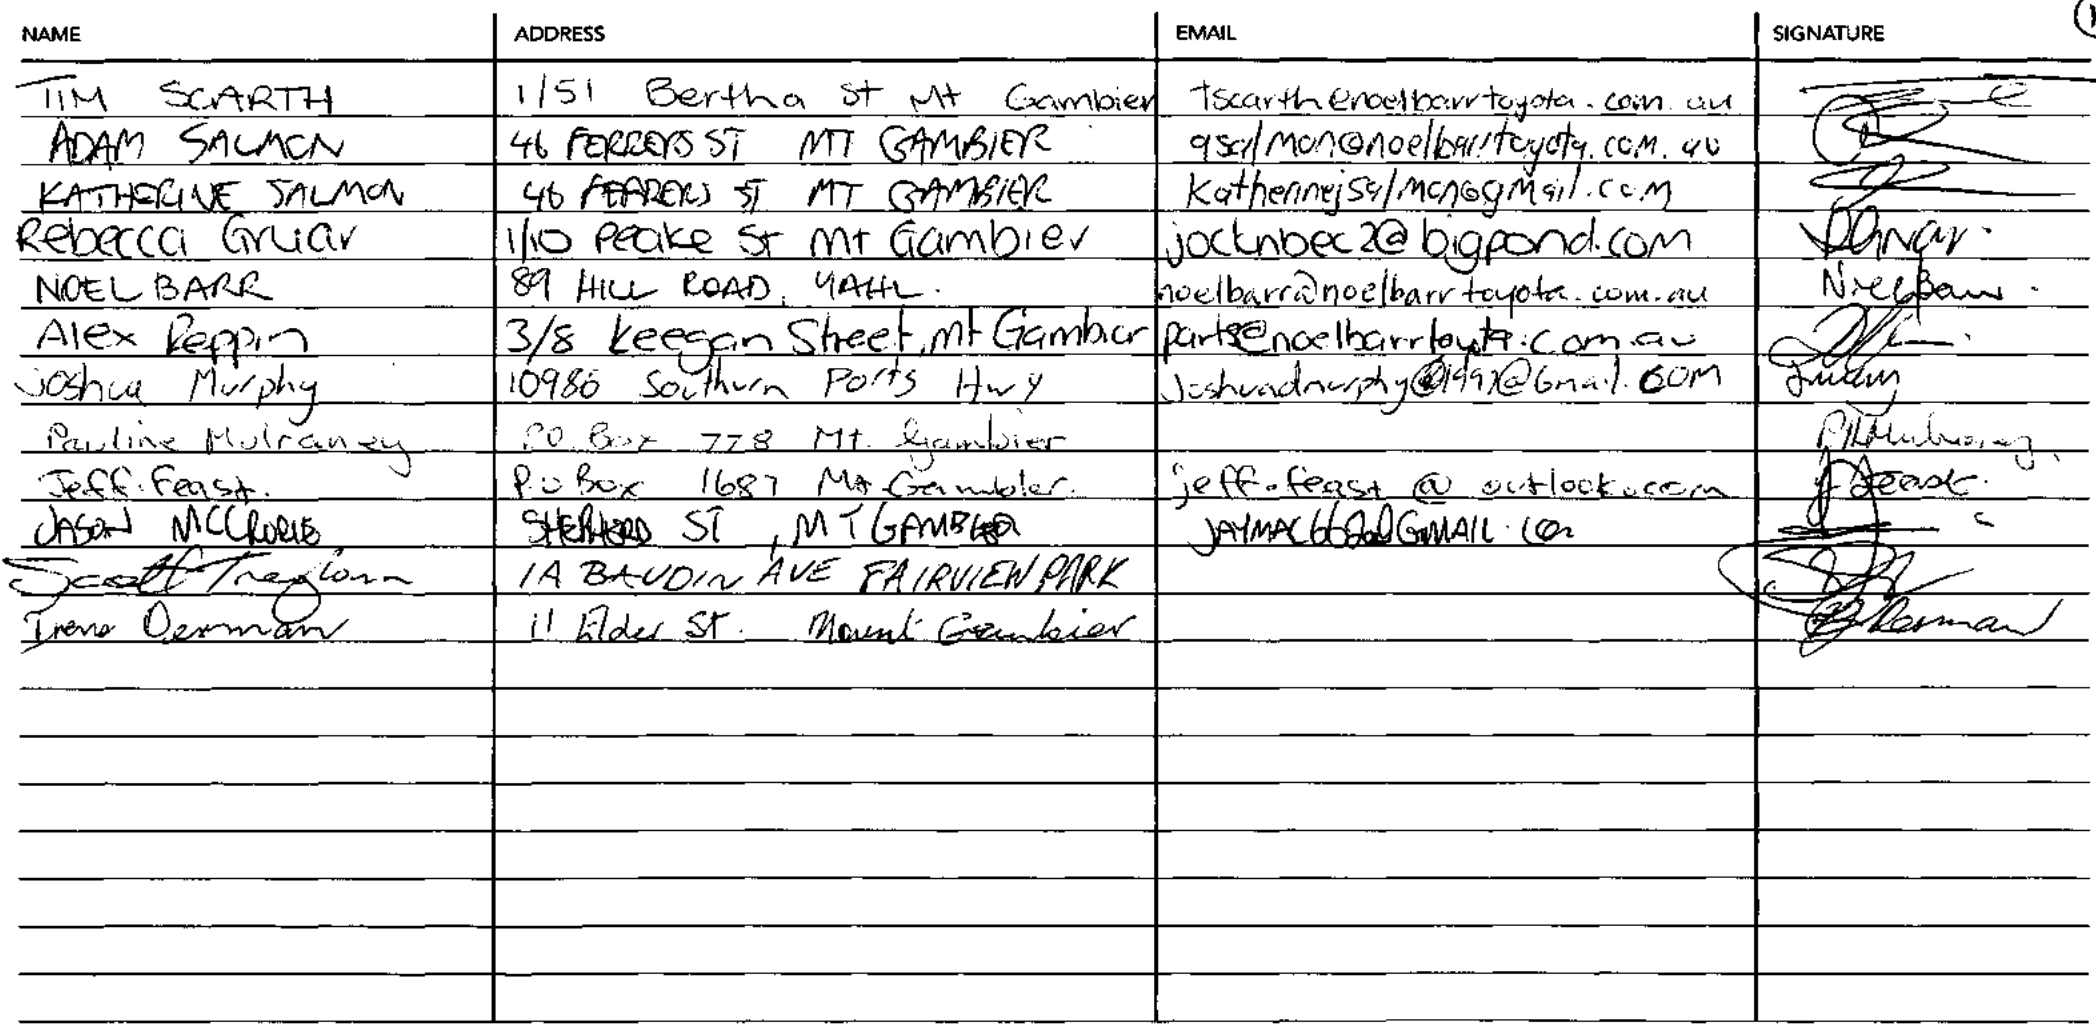 NAME ADDRESS EMAIL SIGNATURE
TIM SCARTH 1/51 Bertha St Mt Gambier tscarth@noelbarrtoyota.com.au
ADAM SALMON 46 FERRERS ST MT GAMBIER asalmon@noelbarrtoyota.com.au
KATHERINE SALMON 46 FERRERS ST MT GAMBIER katherinejsalmon@gmail.com
Rebecca Gruar 1/10 Peake St Mt Gambier jocknbec2@bigpond.com
NOEL BARR 89 HILL ROAD, YAHL. noelbarr@noelbarrtoyota.com.au Noel Barr.
Alex Peppin 3/8 Keegan Street, Mt Gambier parts@noelbarrtoyota.com.au
Joshua Murphy 10986 Southern Ports Hwy
Pauline Mulraney P.O. Box 778 Mt. Gambier
Jeff Feast. P.O Box 1687 Mt Gambier. jeff.feast@outlook.com J Feast.
JASON MCCRORIE SHEPHERD ST, MT GAMBIER
Scott 1A BAUDIN AVE FAIRVIEW PARK
Irene Derman 11 Elder St. Mount Gambier Derman